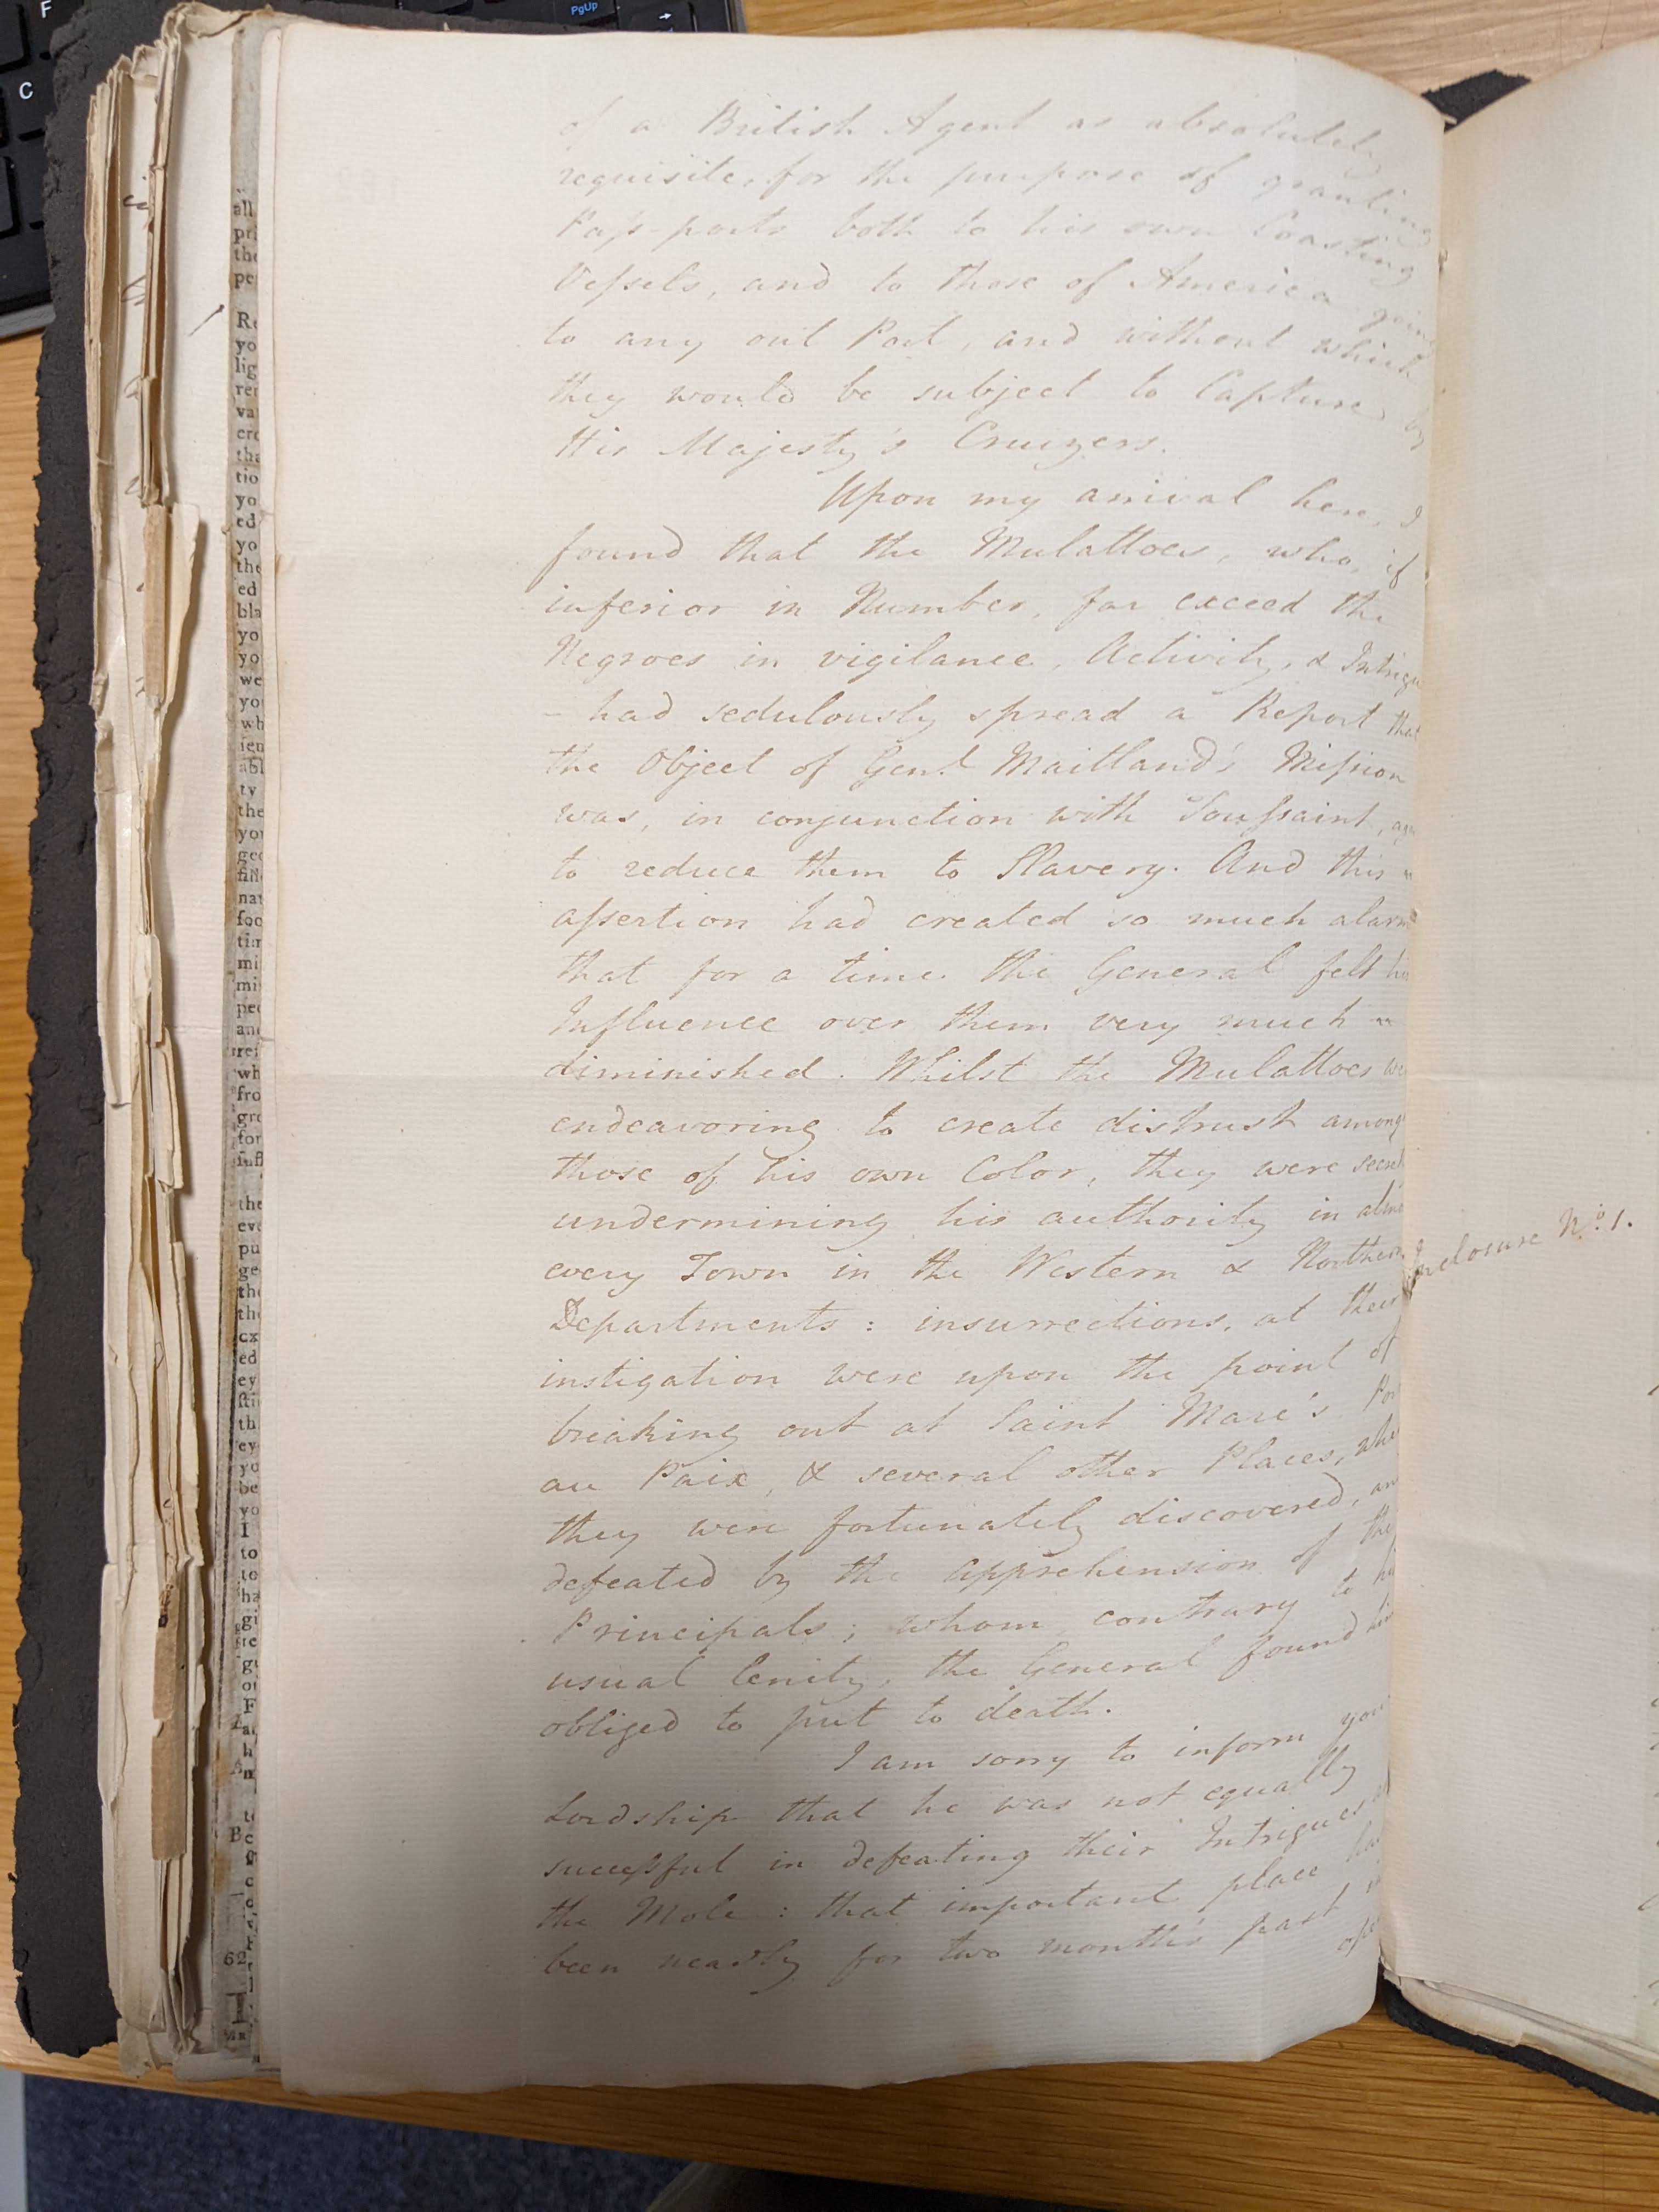 of a British Agent as absolutely
requisite, for the purpose of granting
Pass-ports both to his own Coasting
Vessels, and to those of America going
to any out Port, and without which
they would be subject to Capture by
His Majesty's Cruizers.
Upon my arrival here, I
found that the Mulattoes, who, if
inferior in Number, far exceed the
Negroes in vigilance, Activity, & Intrigue
- had sedulously spread a Report that
the Object of Genl Maitland's Mission
was, in conjunction with Toussaint,
to reduce them to Slavery. And this
assertion had created so much alarm
that for a time the General felt his
Influence over them very much
diminished. Whilst the Mulattoes
endeavoring to create distrust among
those of his own Color, they were
undermining his authority in
every Town in the Western & Northern
Departments: insurrections, at their
instigation were upon the point of
breaking out at Saint Marc's
au Paix, & several other Places,
they were fortunately discovered,
defeated by the apprehension of the
Principals; whom, contrary to
usual lenity, the General found
obliged to put to death.
I am sorry to inform your
Lordship that he was not equally
successful in defeating their Intrigues
the Mole: that important place
been nearly for two months past
Inclosure No. 1.
all
the
62